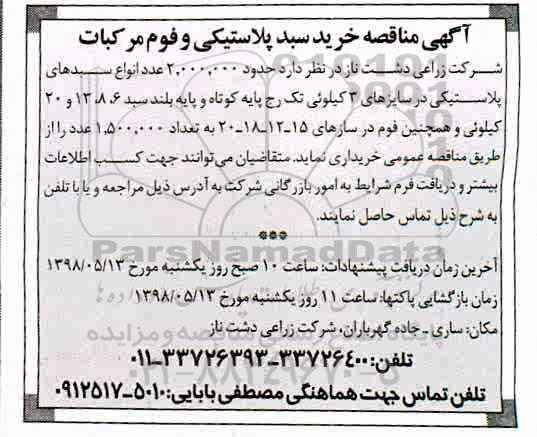 آگهی مناقصه خرید سبد پلاستیکی و فوم مرکبات
شرکت زراعی دشت ناز در نظر دارد حدود ۲,۰۰۰,۰۰۰ عدد انواع سبدهای
پلاستیکی در سایزهای ۳ کیلوئی تک رج پایه کوتاه و پایه بلند سبد ۱۳،۸،۶ و ۲۰
کیلوئی و همچنین فوم در سازهای ۱۵-۱۲-۱۸-۲۰ به تعداد ۱,۵۰۰,۰۰۰ عدد را از
طریق مناقصه عمومی خریداری نماید. متقاضیان می‌توانند جهت کسب اطلاعات
بیشتر و دریافت فرم شرایط به امور بازرگانی شرکت به آدرس ذیل مراجعه و یا با تلفن
به شرح ذیل تماس حاصل نمایند.
***
ParsNamadData
آخرین زمان دریافت پیشنهادات: ساعت ۱۰ صبح روز یکشنبه مورخ ۱۳۹۸/۰۵/۱۳
زمان بازگشایی پاکتها: ساعت ۱۱ روز یکشنبه مورخ ۱۳۹۸/۰۵/۱۳
مکان: ساری - جاده گهرباران، شرکت زراعی دشت ناز
تلفن: ۳۳۷۲۶۴۰۰-۳۳۷۲۶۳۹۳-۰۱۱
تلفن تماس جهت هماهنگی مصطفی بابایی: ۵۰۱۰-۰۹۱۲۵۱۷